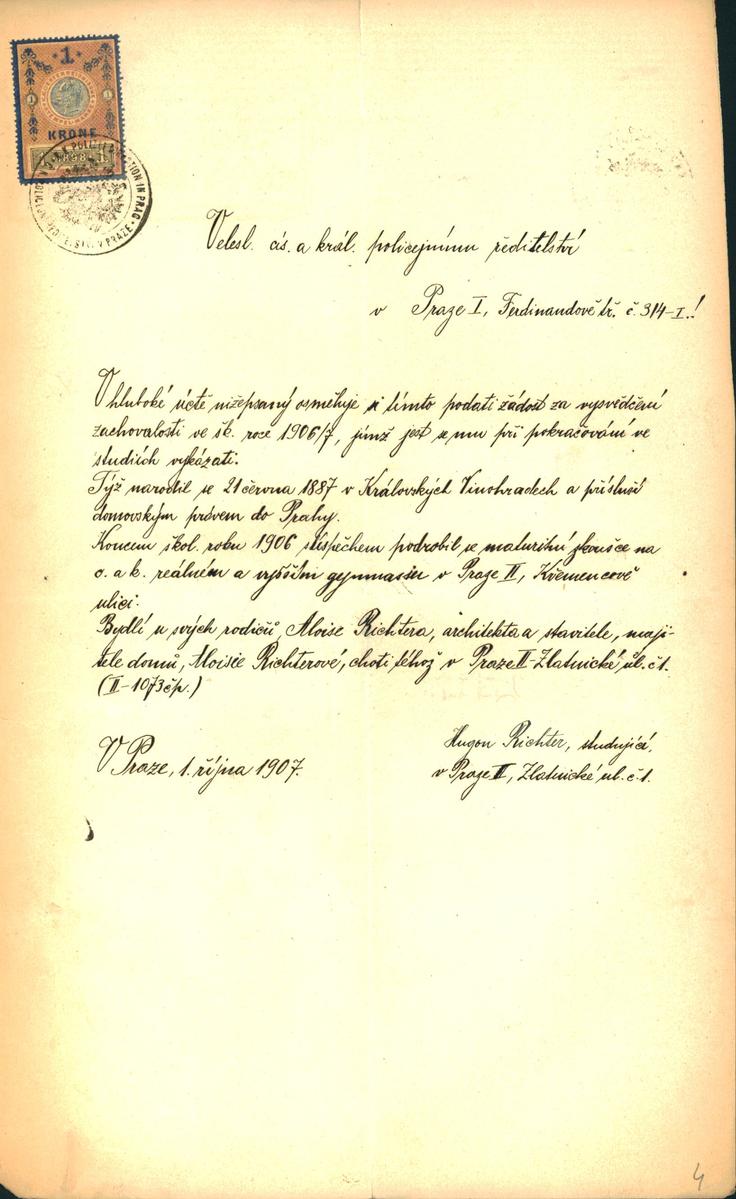 1
1 1
KRONE
1898
K. K. POLIZEI-DIRECTION IN PRAG
V PRAZE
Velesl. cís. a král. policejnímu ředitelství
v Praze I, Ferdinandově tř. č. 314-I.!
V hluboké úctě nížepsaný osměluje si tímto podati žádost za vysvědčení
zachovalosti ve šk. roce 1906/7, jímž jest se mu při pokračování ve
studiích vykázati.
Týž narodil se 21 června 1887 v Královských Vinohradech a přísluší
domovským právem do Prahy.
Koncem škol. roku 1906 s úspěchem podrobil se maturitní zkoušce na
c. a k. reálném a vyšším gymnasiu v Praze II, Křemencově
ulici.
Bydlí u svých rodičů, Aloise Richtera, architekta a stavitele, maji-
tele domů, Aloisie Richterové, choti téhož v Praze II-Zlatnické ul. č. 1.
(II-1073 čp.)
V Praze, 1. října 1907.
Hugon Richter, studující,
v Praze II, Zlatnické ul. č. 1.
4